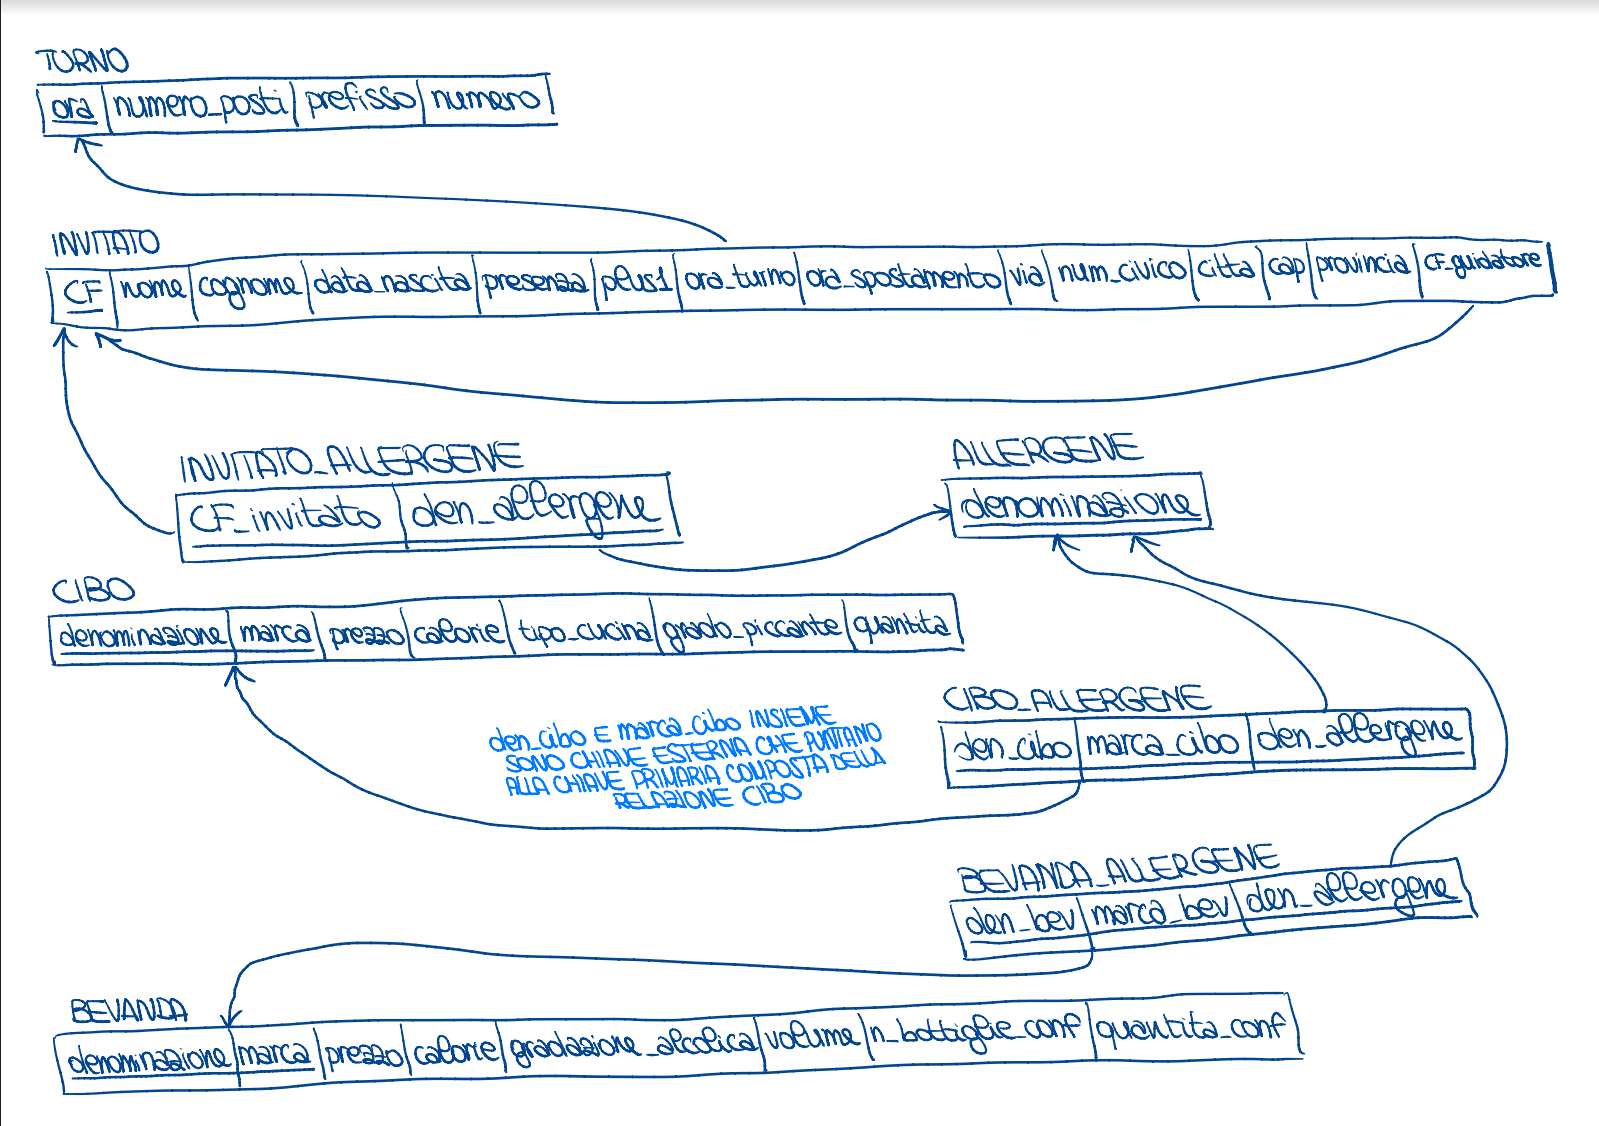 TURNO
ora numero_posti prefisso numero
INVITATO
CF nome cognome data_nascita presenza plus1 ora_turno ora_spostamento via num_civico citta cap provincia CF_guidatore
INVITATO_ALLERGENE
CF_invitato den_allergene
ALLERGENE
denominazione
CIBO
denominazione marca prezzo calorie tipo_cucina grado_piccante quantita
den_cibo E marca_cibo INSIEME
SONO CHIAVE ESTERNA CHE PUNTANO
ALLA CHIAVE PRIMARIA COMPOSTA DELLA
RELAZIONE CIBO
CIBO_ALLERGENE
den_cibo marca_cibo den_allergene
BEVANDA_ALLERGENE
den_bev marca_bev den_allergene
BEVANDA
denominazione marca prezzo calorie gradazione_alcolica volume n_bottiglie_conf quantita_conf